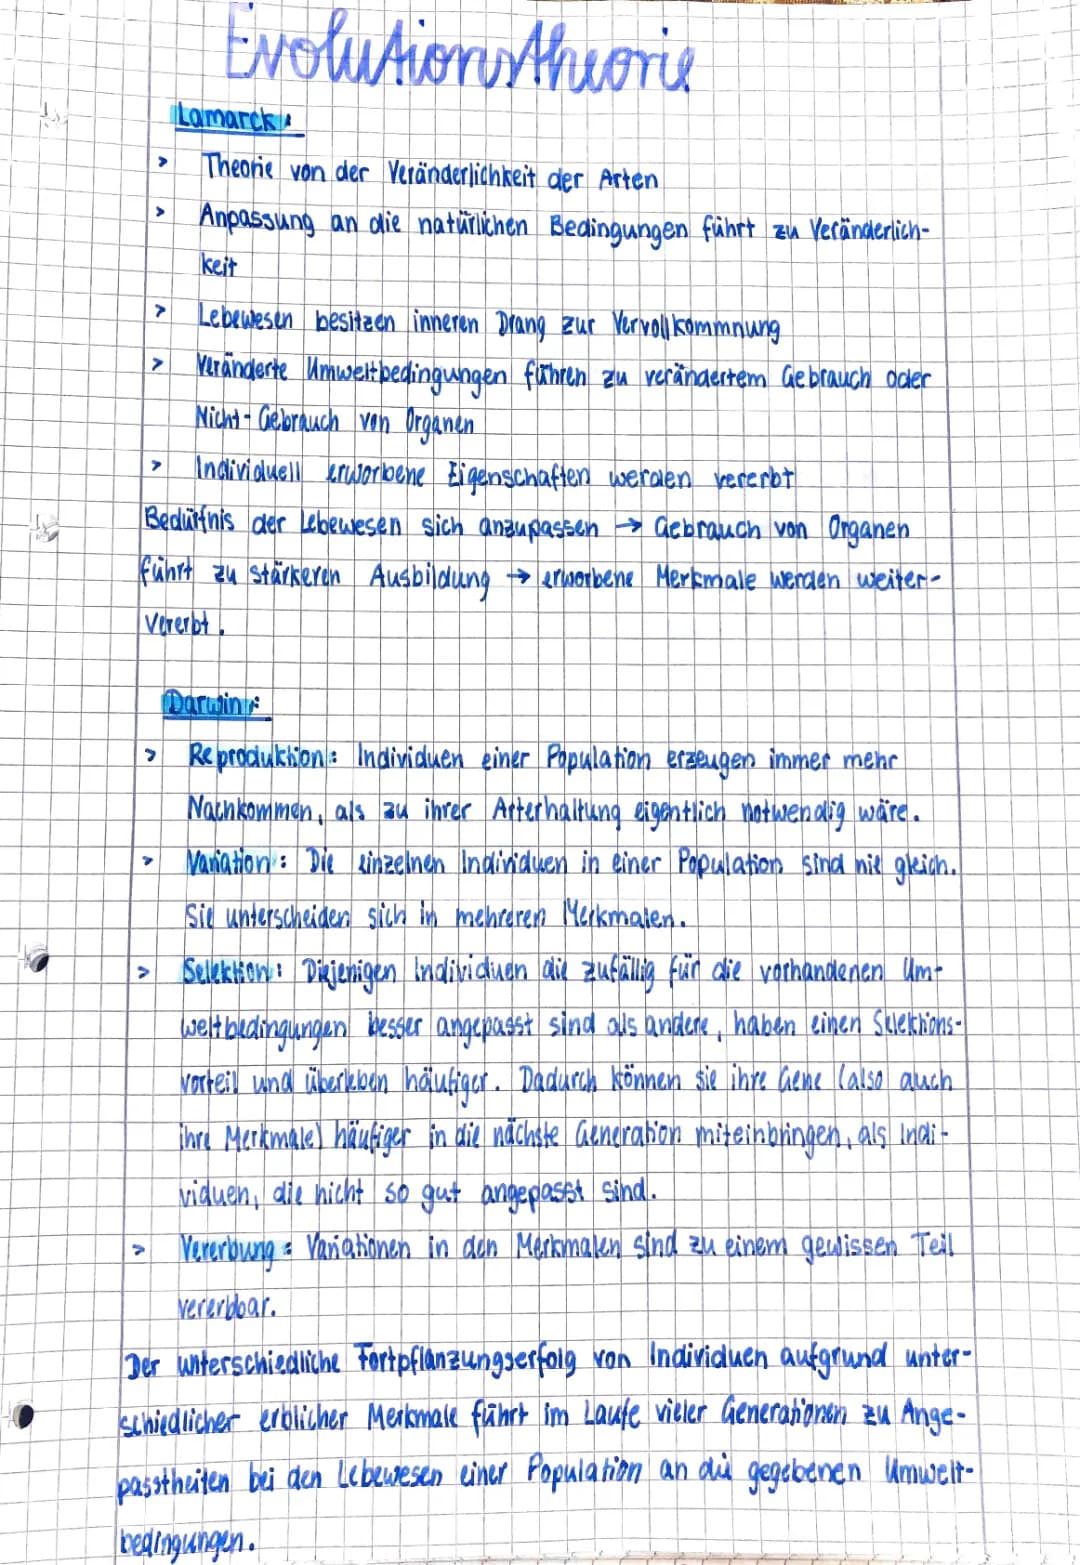 Evolutionstheorie
Lamarck:
> Theorie von der Veränderlichkeit der Arten
> Anpassung an die natürlichen Bedingungen führt zu Veränderlich-
keit
> Lebewesen besitzen inneren Drang zur Vervollkommnung
> Veränderte Umweltbedingungen führen zu verändertem Gebrauch oder
Nicht-Gebrauch von Organen
> Individuell erworbene Eigenschaften werden vererbt
Bedürfnis der Lebewesen sich anzupassen → Gebrauch von Organen
führt zu stärkeren Ausbildung → erworbene Merkmale werden weiter-
vererbt.
Darwin:
> Reproduktion: Individuen einer Population erzeugen immer mehr
Nachkommen, als zu ihrer Arterhaltung eigentlich notwendig wäre.
> Variation: Die einzelnen Individuen in einer Population sind nie gleich.
Sie unterscheiden sich in mehreren Merkmalen.
> Selektion: Diejenigen Individuen die zufällig für die vorhandenen Um-
weltbedingungen besser angepasst sind als andere, haben einen Selektions-
vorteil und überleben häufiger. Dadurch können sie ihre Gene (also auch
ihre Merkmale) häufiger in die nächste Generation miteinbringen, als Indi-
viduen, die nicht so gut angepasst sind.
> Vererbung: Variationen in den Merkmalen sind zu einem gewissen Teil
vererbbar.
Der unterschiedliche Fortpflanzungserfolg von Individuen aufgrund unter-
schiedlicher erblicher Merkmale führt im Laufe vieler Generationen zu Ange-
passtheiten bei den Lebewesen einer Population an die gegebenen Umwelt-
bedingungen.